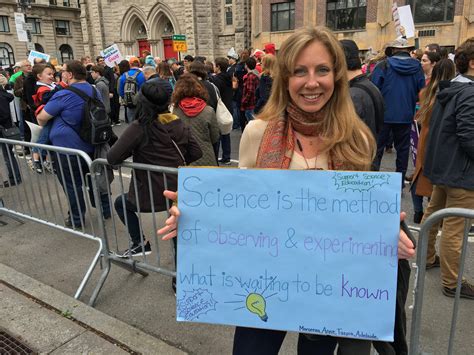 Support Science
Education
Science is the method
of observing & experimenting
what is waiting to be known
Support
Science